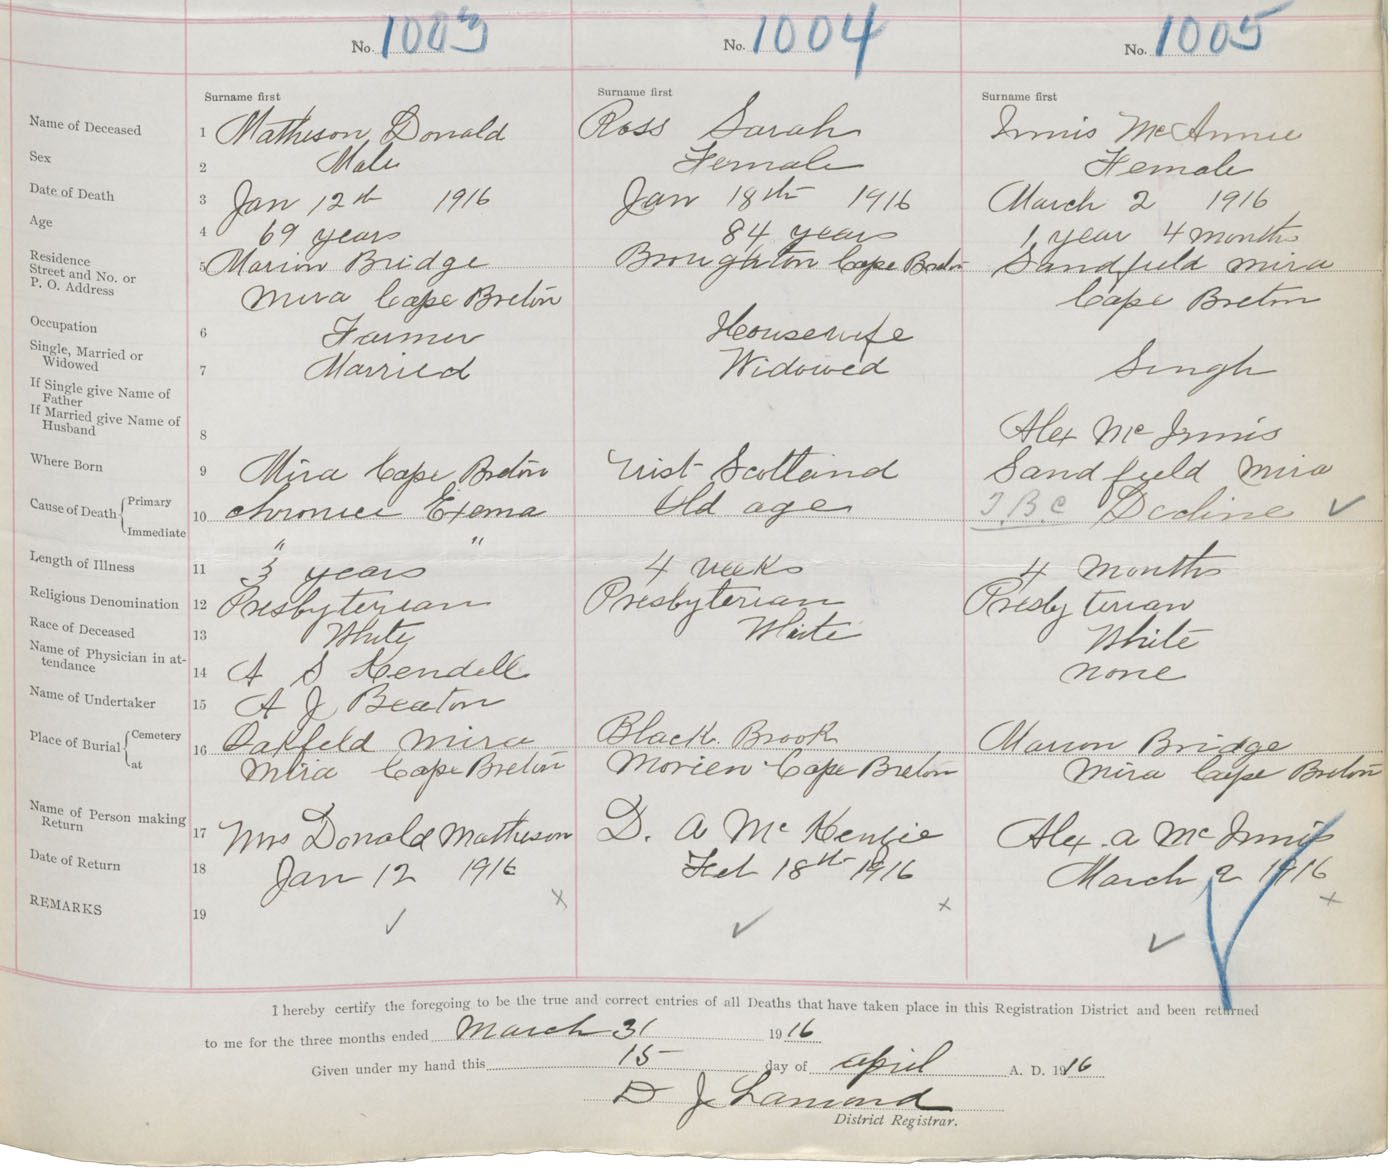 No. 1003 No. 1004 No. 1005
Surname first Surname first Surname first
Name of Deceased 1 Matheson, Donald Ross Sarah Innis Mc Annie
Sex 2 Male Female Female
Date of Death 3 Jan 12th 1916 Jan 18th 1916 March 2 1916
Age 4 69 years 84 years 1 year 4 months
Residence 5 Marion Bridge Broughton Cape Breton Sandfield Mira
Street and No. or
P. O. Address Mira Cape Breton Cape Breton
Occupation 6 Farmer Housewife
Single, Married or
Widowed 7 Married Widowed Single
If Single give Name of
Father
If Married give Name of
Husband 8 Alex Mc Innis
Where Born 9 Mira Cape Breton Uist Scotland Sandfield Mira
Cause of Death { Primary 10 Chronic Exema Old age T.B.C Decline ✓
Immediate " "
Length of Illness 11 3 years 4 weeks 4 months
Religious Denomination 12 Presbyterian Presbyterian Presbyterian
Race of Deceased 13 White White White
Name of Physician in at-
tendance 14 A S Kendall none
Name of Undertaker 15 A J Beaton
Place of Burial { Cemetery 16 Oakfeld Mira Black Brook Marion Bridge
at Mira Cape Breton Morien Cape Breton Mira Cape Breton
Name of Person making
Return 17 Mrs Donald Matheson D. A Mc Kenzie Alex. A Mc Innis
Date of Return 18 Jan 12 1916 Feb 18th 1916 March 2 1916
REMARKS 19 ✓ x ✓ x ✓ x
I hereby certify the foregoing to be the true and correct entries of all Deaths that have taken place in this Registration District and been returned
to me for the three months ended March 31 1916
Given under my hand this 15 day of April A. D. 1916
D J Lamond
District Registrar.